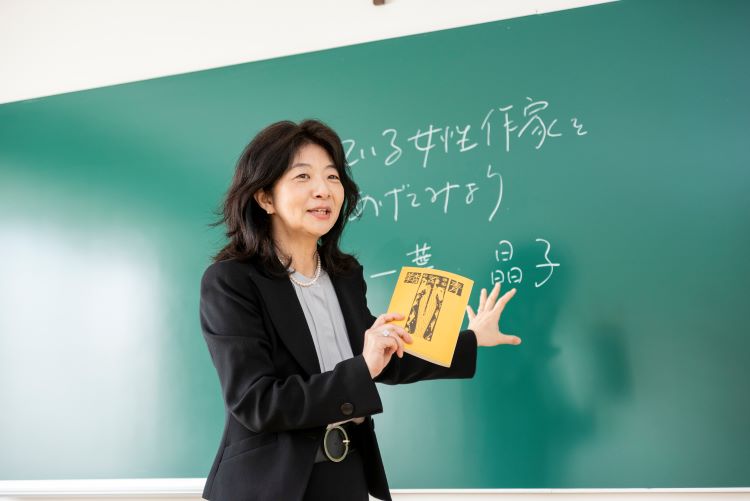 ている女性作家を
あげてみよう
一葉 晶子